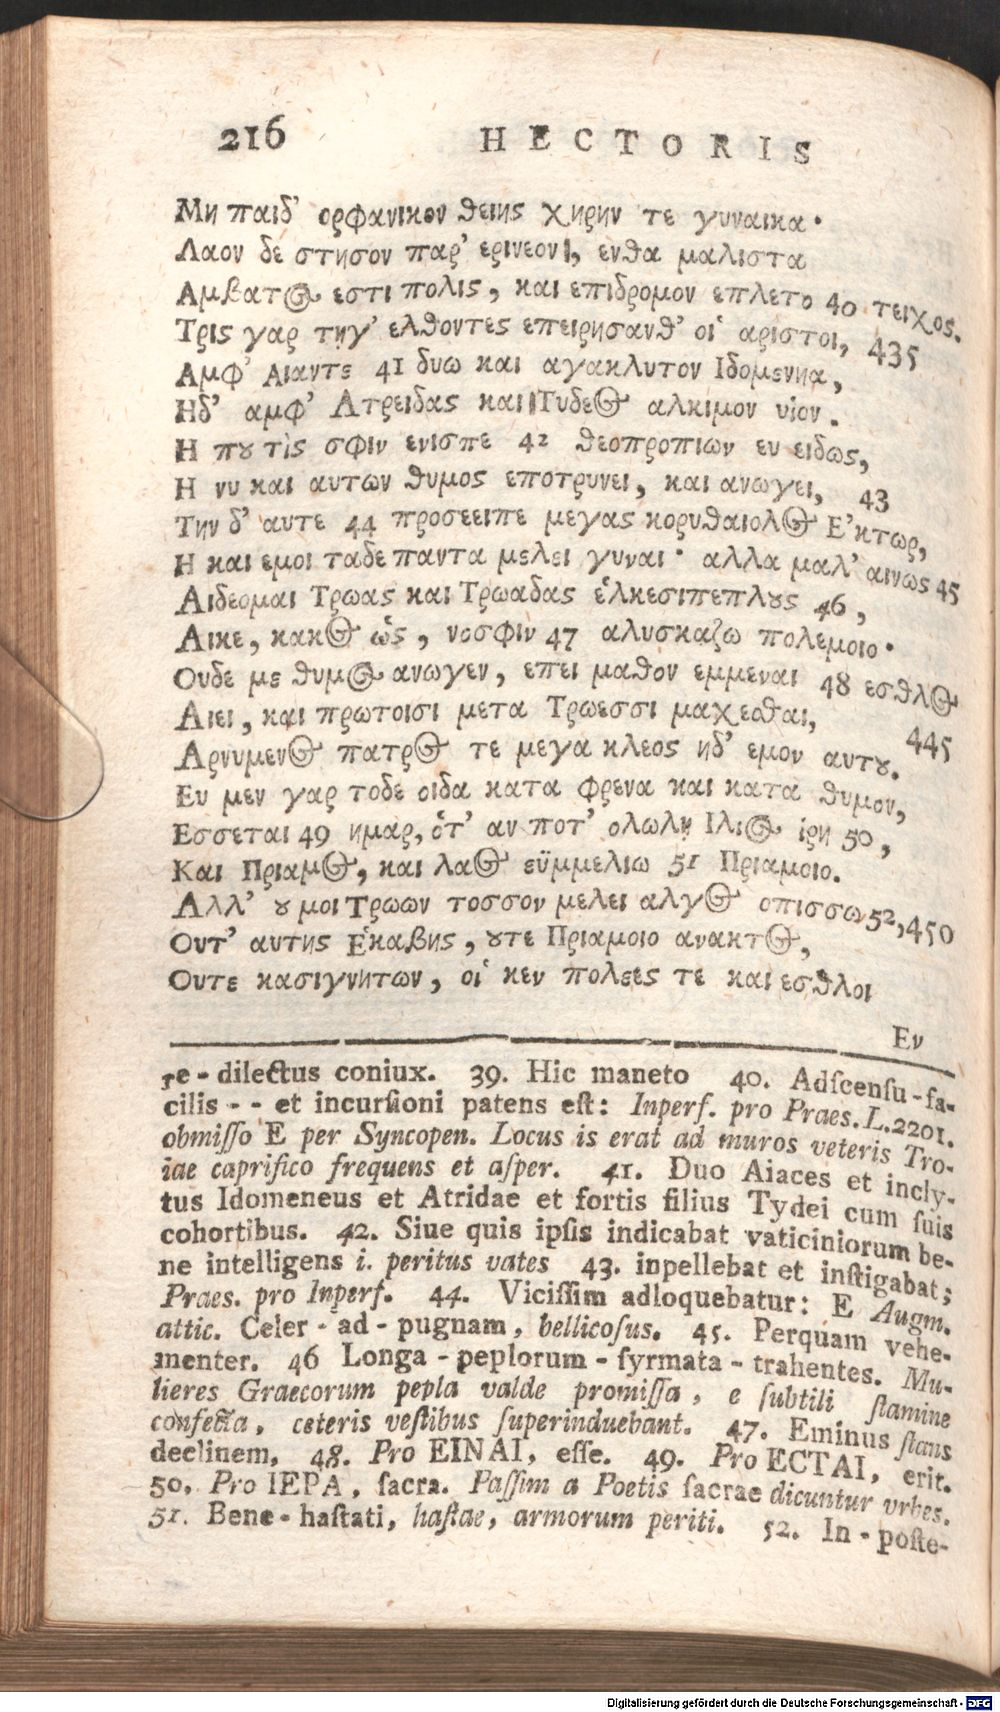 216 HECTORIS
Μη παιδ’ ορφανικον θειης χηρην τε γυναικα·
Λαον δε στησον παρ’ ερινεον, ενθα μαλιστα
Αμβατος εστι πολις, και επιδρομον επλετο 40 τειχος.
Τρις γαρ τηγ’ ελθοντες επειρησανθ’ οἱ αριστοι, 435
Αμφ’ Αιαντε 41 δυω και αγακλυτον Ιδομενηα,
Ηδ’ αμφ’ Ατρειδας και Τυδεος αλκιμον υἱον.
Η που τὶς σφιν ενισπε 42 θεοπροπιων ευ ειδως,
Η νυ και αυτων θυμος εποτρυνει, και ανωγει, 43
Την δ’ αυτε 44 προσεειπε μεγας κορυθαιολος Ε’κτωρ,
Η και εμοι ταδε παντα μελει γυναι· αλλα μαλ’ αινως 45
Αιδεομαι Τρωας και Τρωαδας ἑλκεσιπεπλους 46,
Αικε, κακος ὡς, νοσφιν 47 αλυσκαζω πολεμοιο·
Ουδε με θυμος ανωγεν, επει μαθον εμμεναι 48 εσθλος
Αιει, και πρωτοισι μετα Τρωεσσι μαχεσθαι, 445
Αρνυμενος πατρος τε μεγα κλεος ηδ’ εμον αυτου.
Ευ μεν γαρ τοδε οιδα κατα φρενα και κατα θυμον,
Εσσεται 49 ημαρ, ὁτ’ αν ποτ’ ολωλη Ιλιος ἱρη 50,
Και Πριαμος, και λαος εϋμμελιω 51 Πριαμοιο.
Αλλ’ ου μοι Τρωων τοσσον μελει αλγος οπισσω 52, 450
Ουτ’ αυτης Ἑκαβης, ουτε Πριαμοιο ανακτος,
Ουτε κασιγνητων, οἱ κεν πολεες τε και εσθλοι
Εν
re-dilectus coniux. 39. Hic maneto 40. Adscensu-fa-
cilis -- et incursioni patens est: Inperf. pro Praes. L. 2201.
obmisso E per Syncopen. Locus is erat ad muros veteris Tro-
iae caprifico frequens et asper. 41. Duo Aiaces et incly-
tus Idomeneus et Atridae et fortis filius Tydei cum suis
cohortibus. 42. Siue quis ipsis indicabat vaticiniorum be-
ne intelligens i. peritus vates 43. inpellebat et instigabat;
Praes. pro Inperf. 44. Vicissim adloquebatur: E Augm.
attic. Celer-ad-pugnam, bellicosus. 45. Perquam vehe-
menter. 46 Longa-peplorum-syrmata-trahentes. Mu-
lieres Graecorum pepla valde promissa, e subtili stamine
confecta, ceteris vestibus superinduebant. 47. Eminus stans
declinem, 48. Pro EINAI, esse. 49. Pro ECTAI, erit.
50. Pro IEPA, sacra. Passim a Poetis sacrae dicuntur vrbes.
51. Bene-hastati, hastae, armorum periti. 52. In-poste-
Digitalisierung gefördert durch die Deutsche Forschungsgemeinschaft - DFG